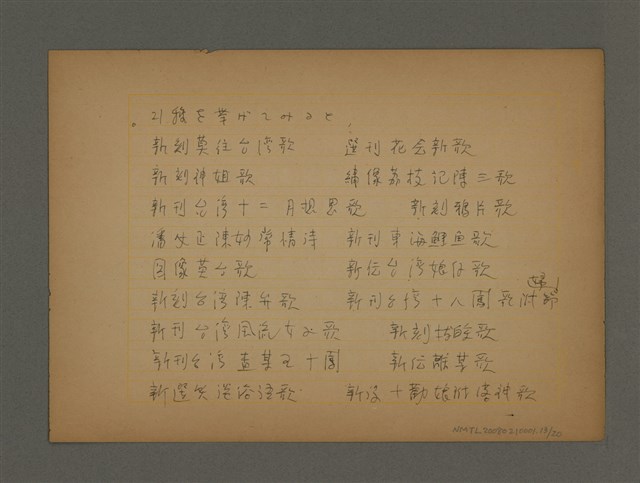 21種を挙げてみると
新刻莫往台湾歌　選刊花会新歌
新刻神姐歌　繡像荔枝記陳三歌
新刊台湾十二月想思歌　新刻鴉片歌
潘必正陳妙常情诗　新刊東海鯉魚歌
図像英台歌　新伝台湾娘仔歌
新刻台湾陳弁歌　新刊台湾十八闖歌附節
新刊台湾風流女子歌　新刻拔皎歌
新刊台湾查某五十闖　新伝離某歌
新選笑談俗語歌　新設十勸娘附落神歌
NMTL20080210004.13/20